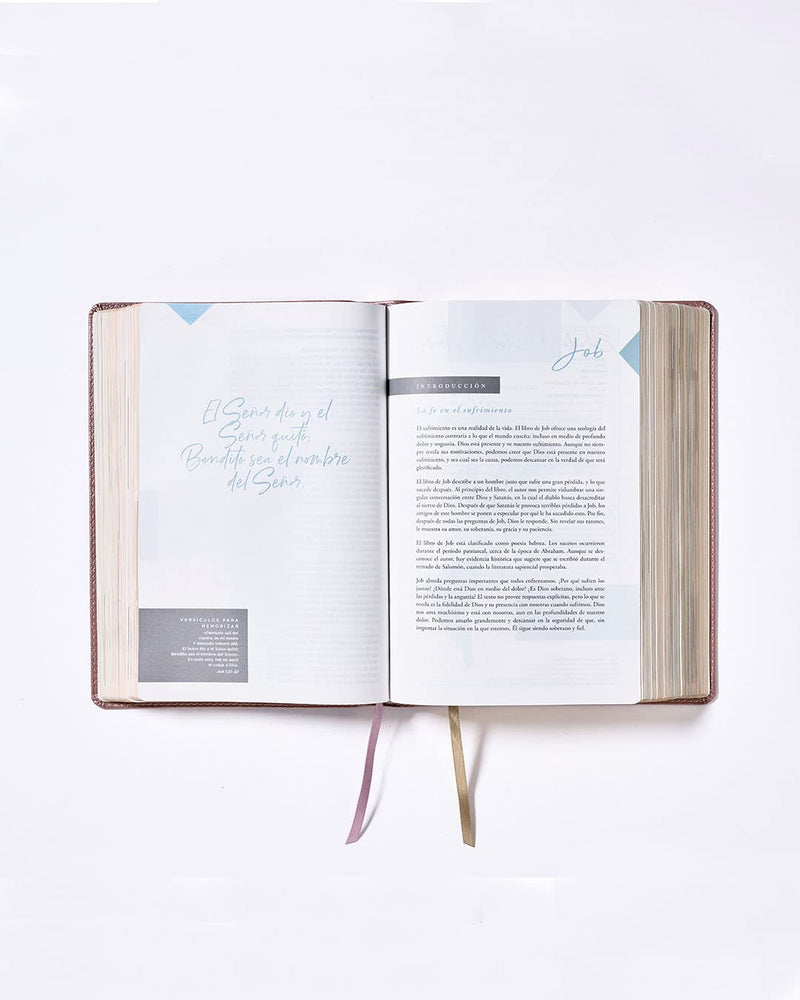 El Señor dio y el
Señor quitó;
Bendito sea el nombre
del Señor.
VERSÍCULOS PARA
MEMORIZAR
«Desnudo salí del
vientre de mi madre
Y desnudo volveré allá.
El Señor dio y el Señor quitó;
Bendito sea el nombre del Señor».
En todo esto, Job no pecó
ni culpó a Dios.
Job 1:21-22
Job
INTRODUCCIÓN
La fe en el sufrimiento
El sufrimiento es una realidad de la vida. El libro de Job ofrece una teología del
sufrimiento contraria a lo que el mundo enseña: incluso en medio de profundo
dolor y angustia, Dios está presente y ve nuestro sufrimiento. Aunque no siem-
pre revela sus motivaciones, podemos creer que Dios está presente en nuestro
sufrimiento, y sea cual sea la causa, podemos descansar en la verdad de que será
glorificado.
El libro de Job describe a un hombre justo que sufre una gran pérdida, y lo que
sucede después. Al principio del libro, el autor nos permite vislumbrar una sin-
gular conversación entre Dios y Satanás, en la cual el diablo busca desacreditar
al siervo de Dios. Después de que Satanás le provoca terribles pérdidas a Job, los
amigos de este hombre se ponen a especular por qué le ha sucedido esto. Por fin,
después de todas las preguntas de Job, Dios le responde. Sin revelar sus razones,
le muestra su amor, su soberanía, su gracia y su paciencia.
El libro de Job está clasificado como poesía hebrea. Los sucesos ocurrieron
durante el período patriarcal, cerca de la época de Abraham. Aunque se des-
conoce el autor, hay evidencia histórica que sugiere que se escribió durante el
reinado de Salomón, cuando la literatura sapiencial prosperaba.
Job aborda preguntas importantes que todos enfrentamos. ¿Por qué sufren los
justos? ¿Dónde está Dios en medio del dolor? ¿Es Dios soberano, incluso ante
las pérdidas y la angustia? El texto no provee respuestas explícitas, pero lo que se
revela es la fidelidad de Dios y su presencia con nosotros cuando sufrimos. Dios
nos ama muchísimo y está con nosotros, aun en las profundidades de nuestro
dolor. Podemos amarlo grandemente y descansar en la seguridad de que, sin
importar la situación en la que estemos, Él sigue siendo soberano y fiel.